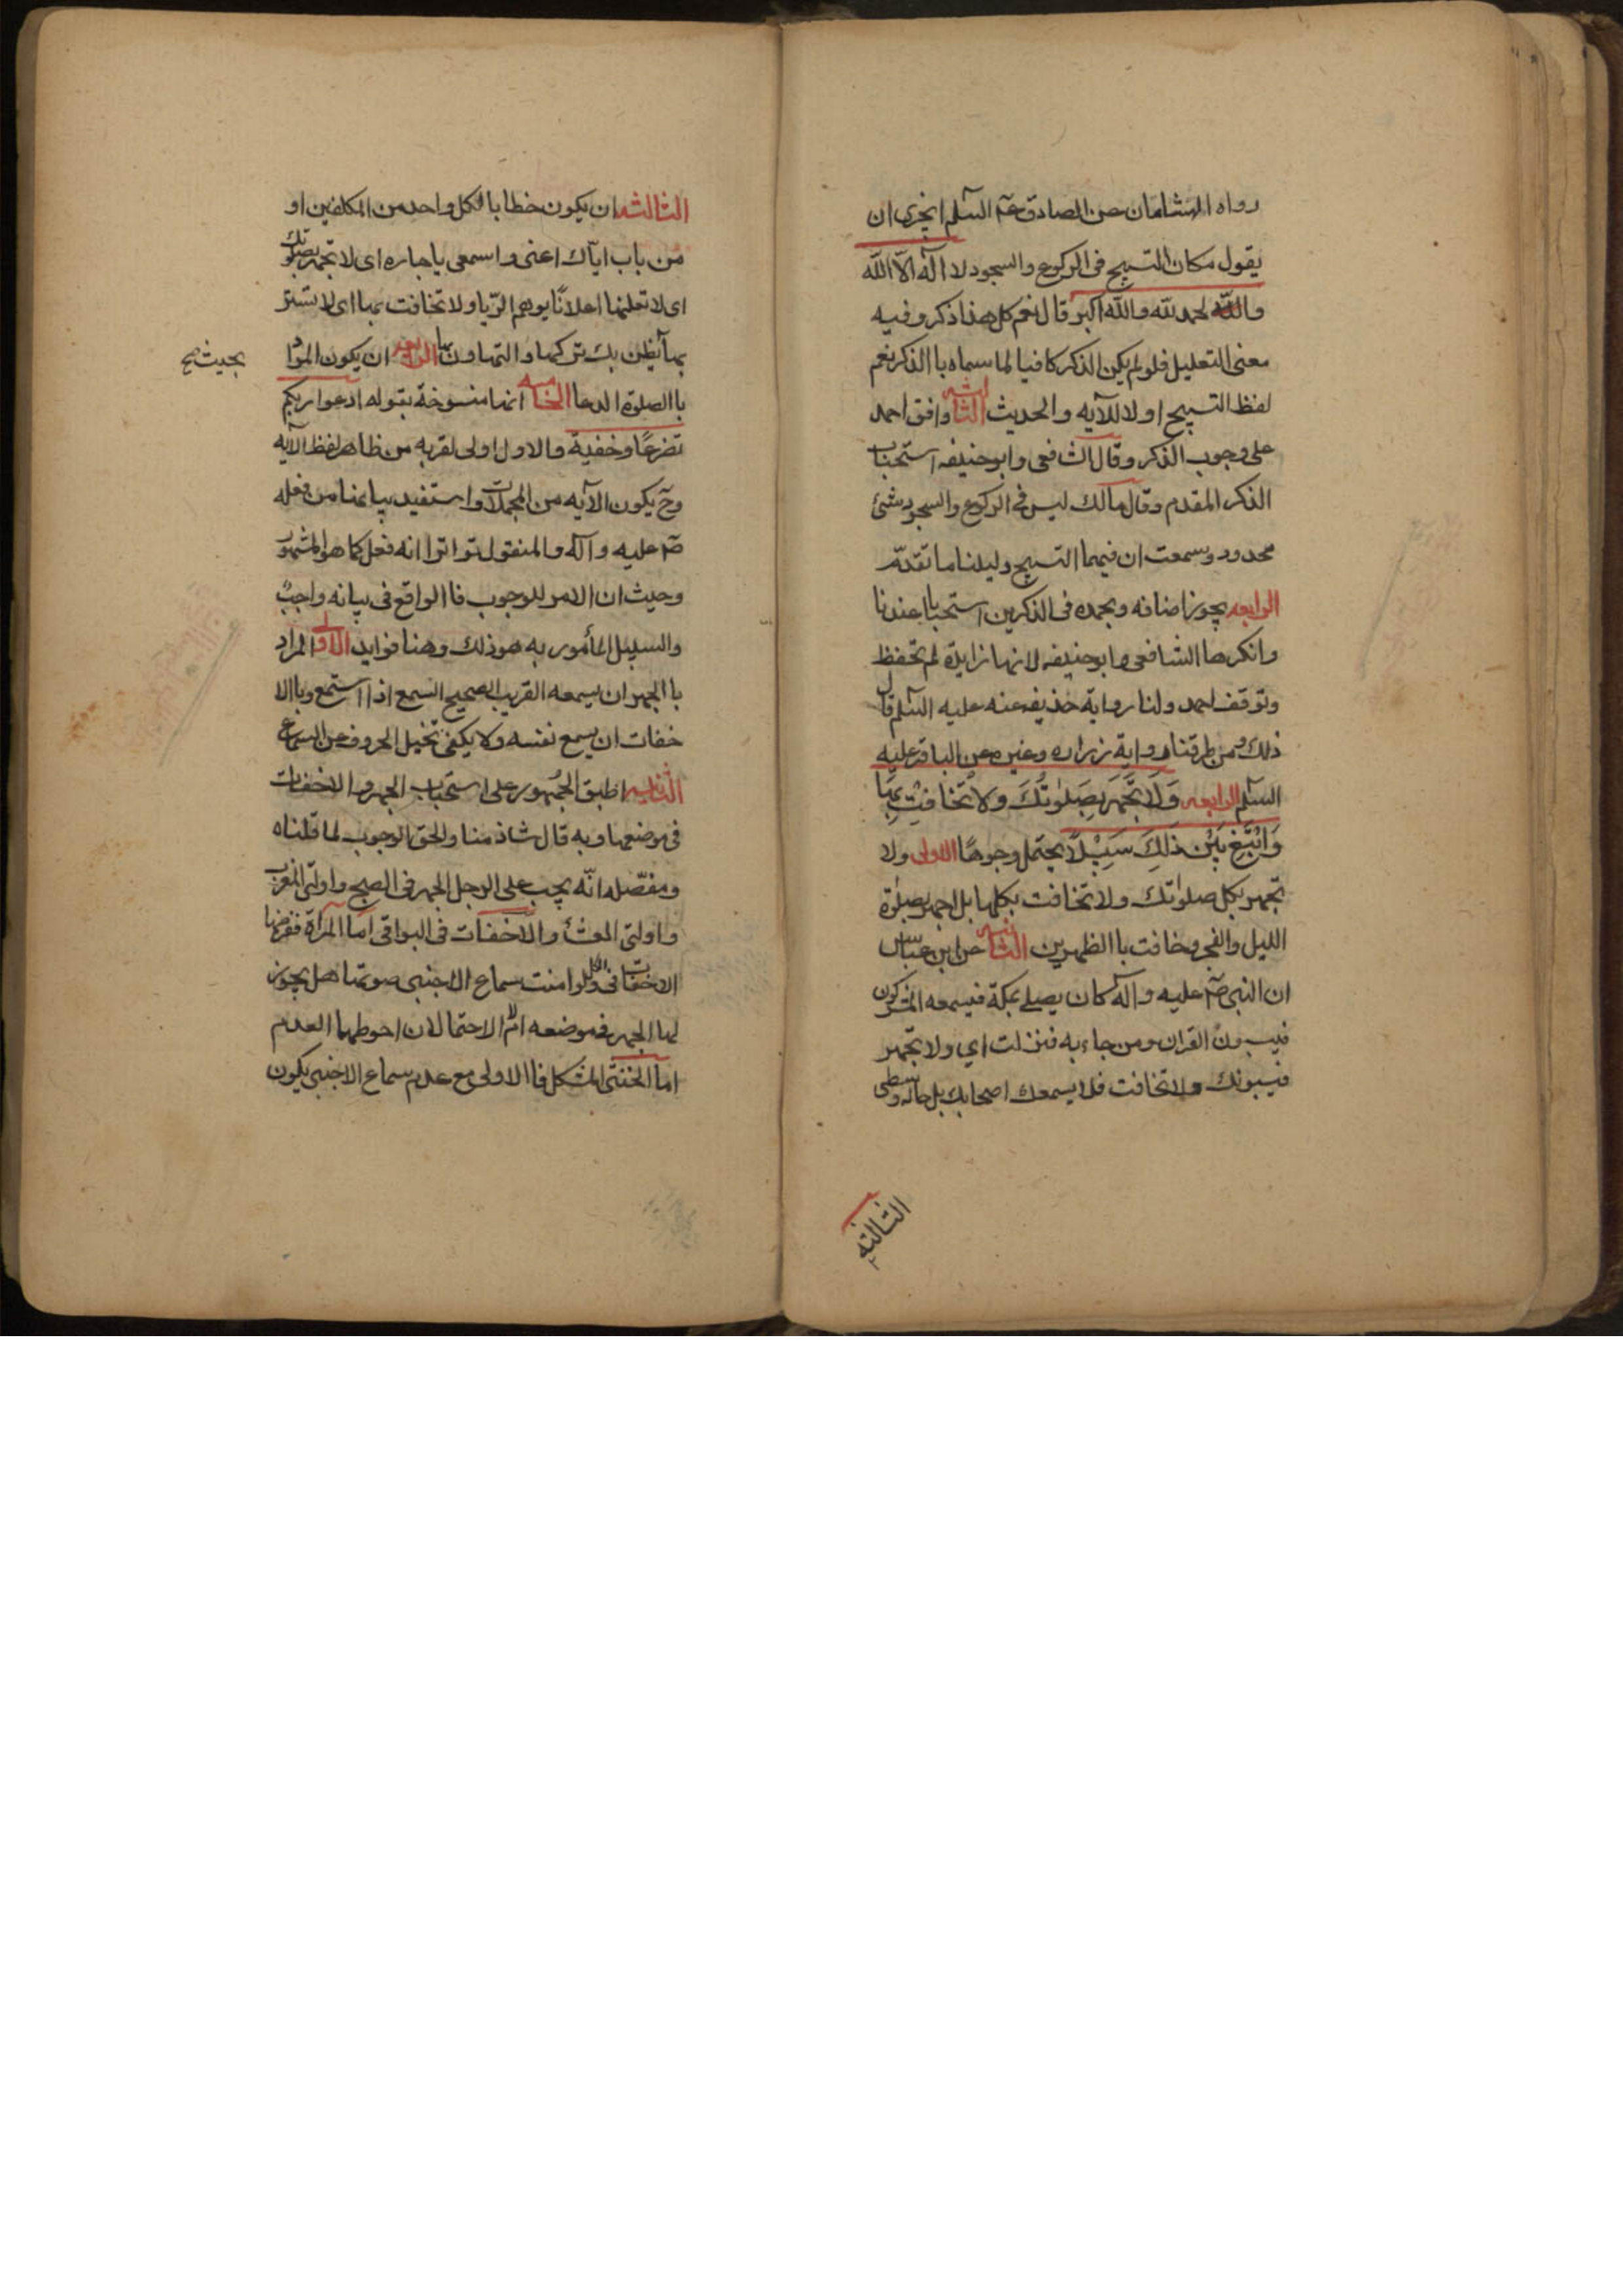 رواه الهشامان عن الصادق عم السلم ايجزى ان
يقول مكان التسبيح فى الركوع والسجود لا اله الا الله
والحمد لله والله اكبر قال نعم كل هذا ذكر وفيه
معنى التعليل فلو لم يكن الذكر كافيا لما سماه با الذكر نعم
لفظ التسبيح اولا للآيه والحديث الثالثه وافق احمد
على وجوب الذكر وقال الشافعى وابو حنيفه استحباب
الذكر المقدم وقال مالك ليس فى الركوع والسجود شئ
محدود وسمعت ان فيهما التسبيح دليلنا ما تقدم
الرابعه يجوز اضافه وبحمده فى الذكرين استحبابا عندنا
وانكرها الشافعى وابو حنيفه لانها زايدة لم تحفظ
وتوقف احمد ولنا رواية حذيفه عنه عليه السلم قال
ذلك ومن طرقنا رواية زراره وغيره عن الباقر عليه
السلم الرابعه وَلَا تَجْهَر بِصَلوٰتِكَ وَلا تُخَافِتْ بِهَا
وَابْتَغِ بَيْنَ ذٰلِكَ سَبِيْلًا يحتمل وجوهًا الاولى ولا
تجهر بكل صلوتك ولا تخافت بكلها بل اجهر بصلوة
الليل والفجر وخافت با الظهرين الثانيه عن ابن عباس
ان النبى صم عليه وآله كان يصلى بمكة فيسمعه المشركون
فيسبون القران ومن جاء به فنزلت اى ولا تجهر
فيسبونك ولا تخافت فلا يسمعك اصحابك بل حاله وسطى
الثالثه
الثالثه ان يكون خطابا لكل واحد من المكلفين او
من باب اياك اعنى واسمعى يا جاره اى لا تجهر بصلوتك
اى لا تعلنها اعلانًا يوهم الريا ولا تخافت بها اى لا تستتر
بها يظن بك تركها والتهاون بها الرابعه ان يكون المراد
بحيث صح
با الصلوة الدعا الخامسه انها منسوخة بقوله ادعوا ربكم
تضرعًا وخفية والاول اولى لقربه من ظاهر لفظ الآيه
وح يكون الآيه من المجملات واستفيد بيانها من فعله
صم عليه وآله والمنقول تواترا انه فعل كما هو المشهور
وحيث ان الامر للوجوب فا الواقع فى بيانه واجب
والسبيل المأمور به هو ذلك وهنا فوايد الاولى المراد
با الجهر ان يسمعه القريب الصحيح السمع اذا استمع وبا الا
خفات ان يسمع نفسه ولا يكفى تخيل الحروف عن السماع
الثانيه اطبق الجمهور على استحباب الجهر والاخفات
فى موضعها وبه قال شاذ منا والحق الوجوب لما قلناه
ومفصله انّه يجب على الرجل الجهر فى الصبح واولتى المغرب
واولتى العشا والاخفات فى البواقى اما المرأة ففرضها
الاخفات فى الكل ولو امنت سماع الاجنبى صوتها هل يجوز
لها الجهر فى موضعه ام لا الاحتمالان احوطهما العدم
اما الخنثى المشكل فا الاولى مع عدم سماع الاجنبى يكون